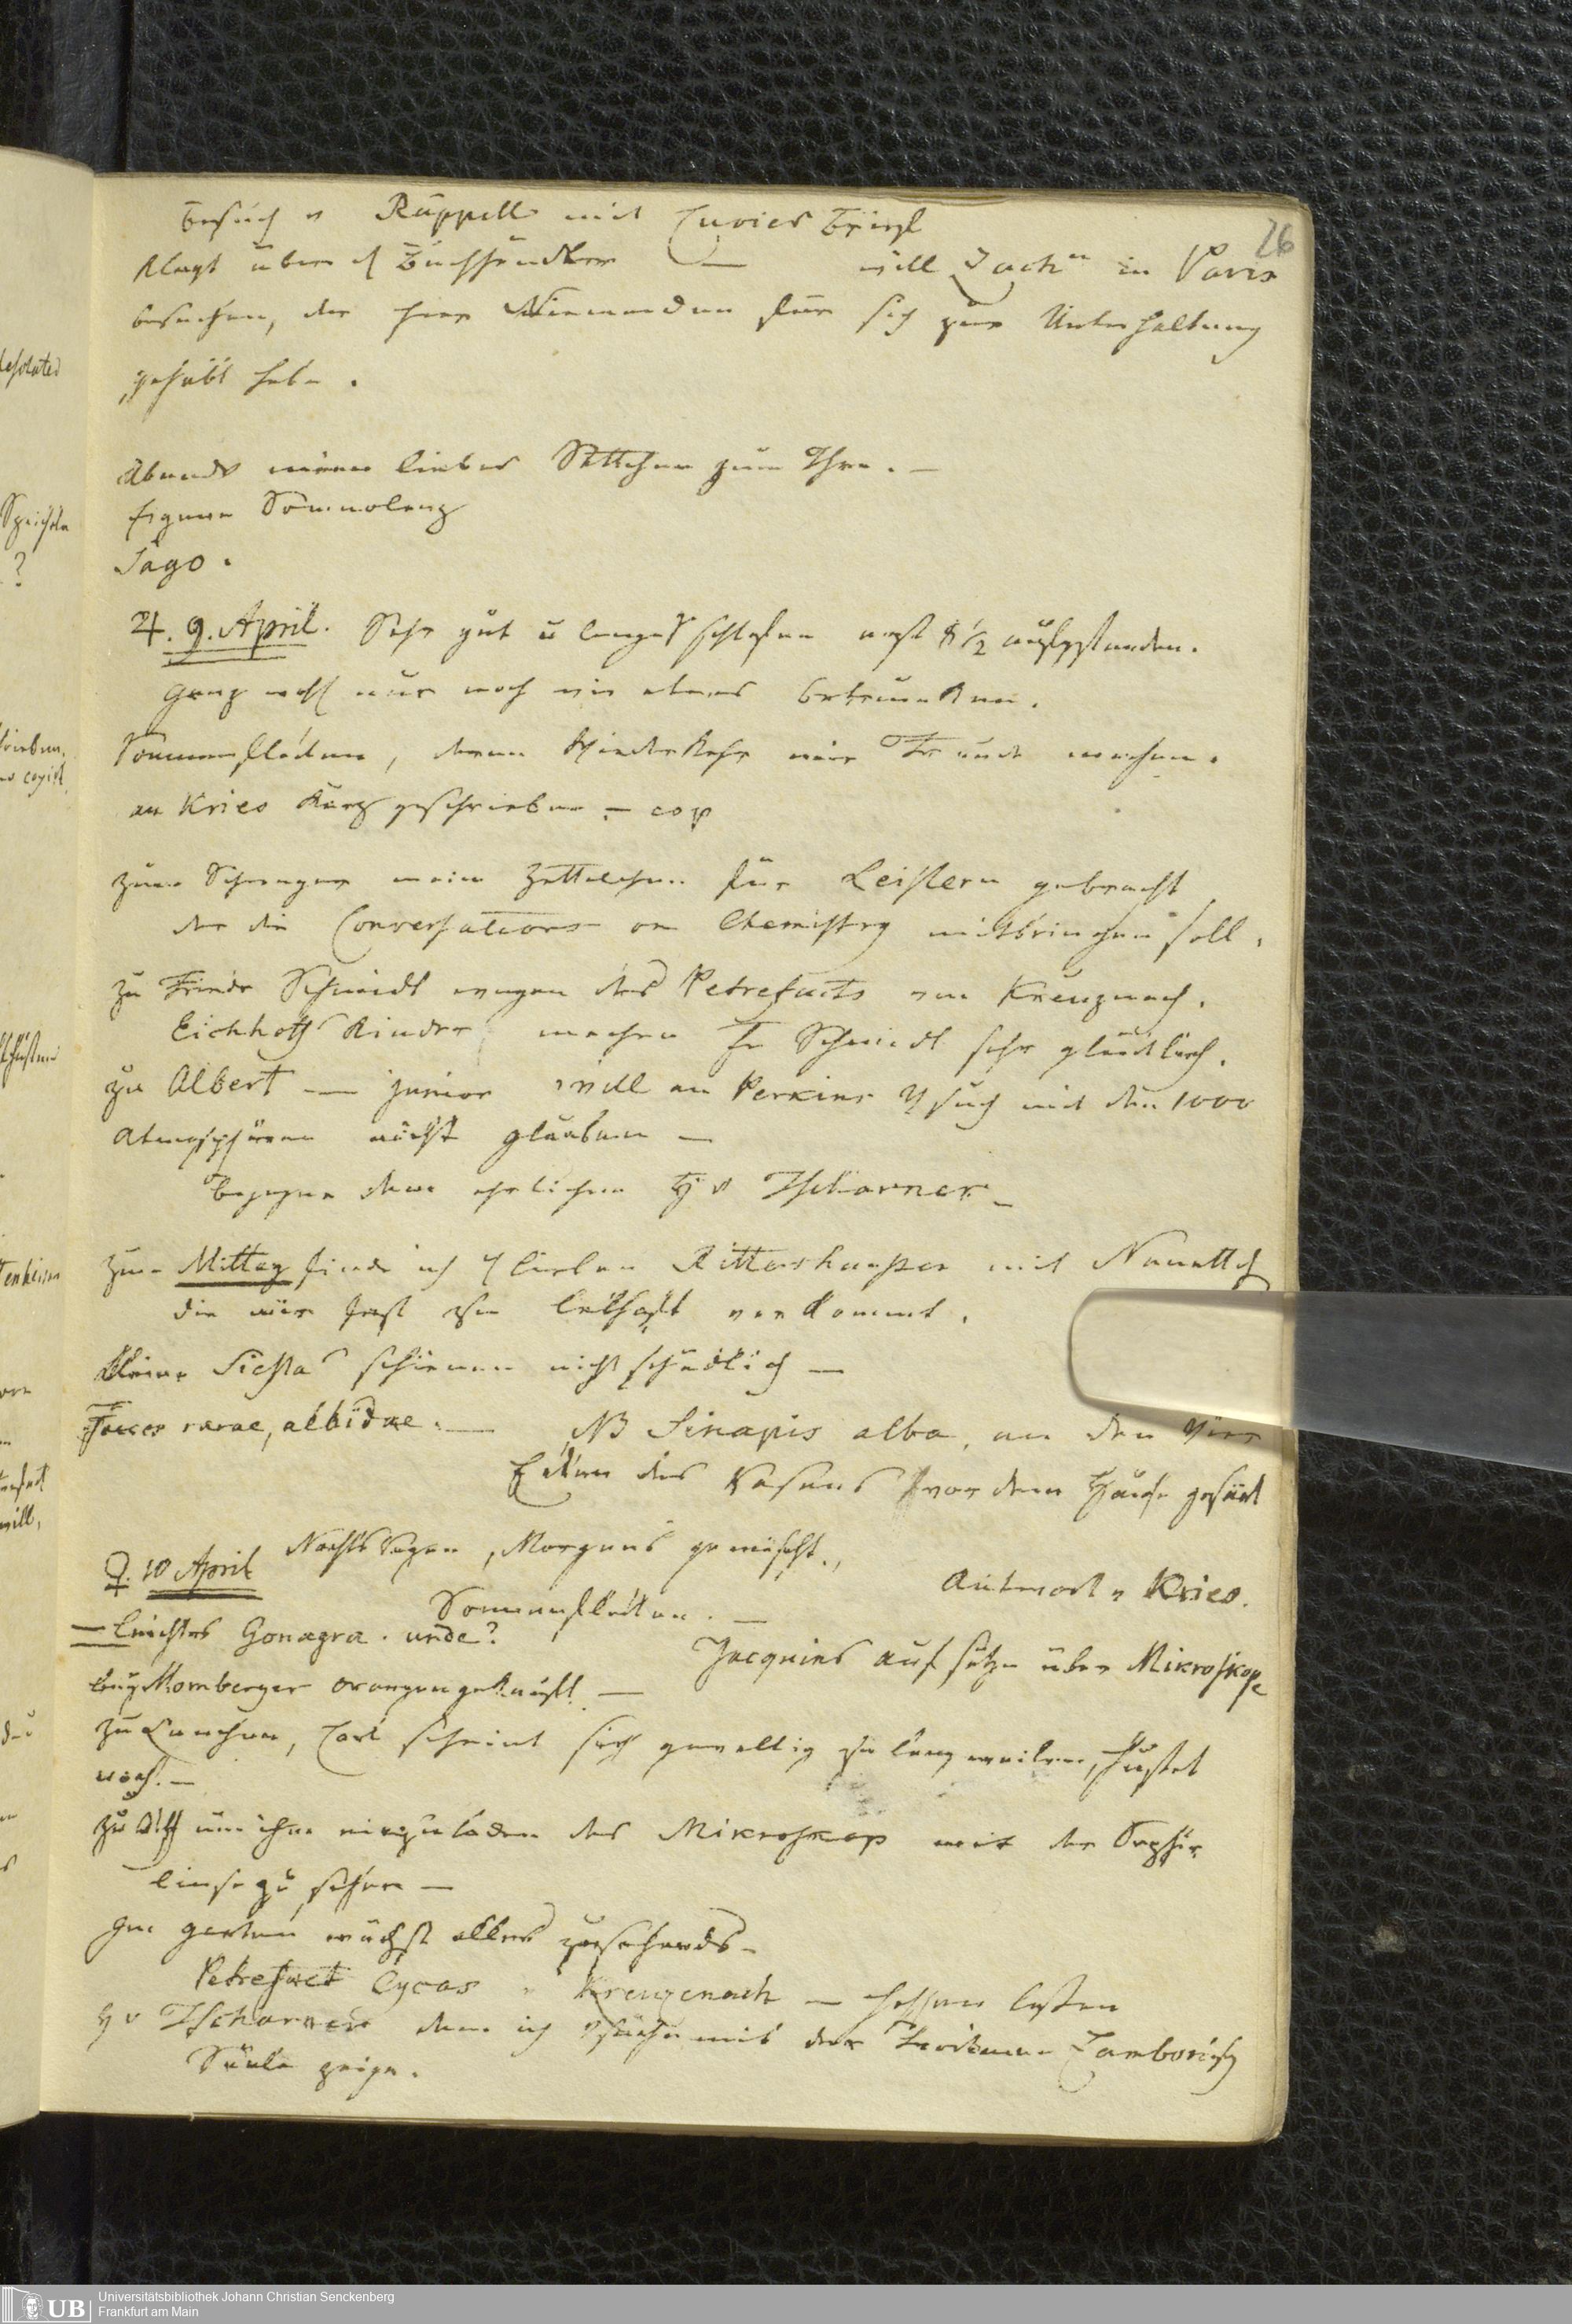 26
Besuch v Rüppell mit Cuviers Briefl
klagt über d Buchhändler — will Zach in Paris
besuchen, der hier Niemanden für sich zur Unterhaltung
gehabt habe.
Abends meine lieber Settchen zum Thee. —
eigene Somnolenz
Sago.
♃. 9. April. Sehr gut u lange geschlafen erst 8 1/2 aufgestanden.
Ganz wohl nur noch ein etwas betrunken.
Sonnenflecken, deren Wiederkehr mir Freude machen.
an Kries kurz geschrieben. — cop
zum Schwager mein Zettelchen für Leistern gebracht
der die Conversations on Chemistry mitbringen soll.
zu Friedr Schmidt wegen des Petrefacts von Kreuznach.
Eichhoffs Kinder machen Fr Schmidt sehr glücklich.
zu Albert — junior will an Perkins Vsuch mit den 1000
Atmosphären nicht glauben —
begegne dem ehrlichen H v Tscharner —
zum Mittag finde ich d lieben Rittershausen mit Nanettch
die mir fast zu lebhaft vorkommt.
kleine Siesta schienen nicht schädlich —
Faeces rarae, albidae. — NB Sinapis alba, an den vier
Ecken des Rasens vor dem Hause gesäet
♀. 10 April Nachts Regen, Morgens gemischt.
Sonnenflecken. — Antwort v Kries.
— leichtes Gonagra. unde? Jacquins Aufsätze über Mikroskope
bey Momberger Orangen gekauft. —
zu Lunchen, Carl scheint sich gewaltig zu langweilen, hustet
noch. —
zu um ihn einzuladen das Mikroskop mit der Saphir
linse zu sehen —
Im Garten wächst alles zusehends —
Petrefact Cycas v Kreuzenach —
H v Tscharner dem ich Vsuche mit der trockenen Zambonisch
Säule zeige.
Universitätsbibliothek Johann Christian Senckenberg
Frankfurt am Main
UB